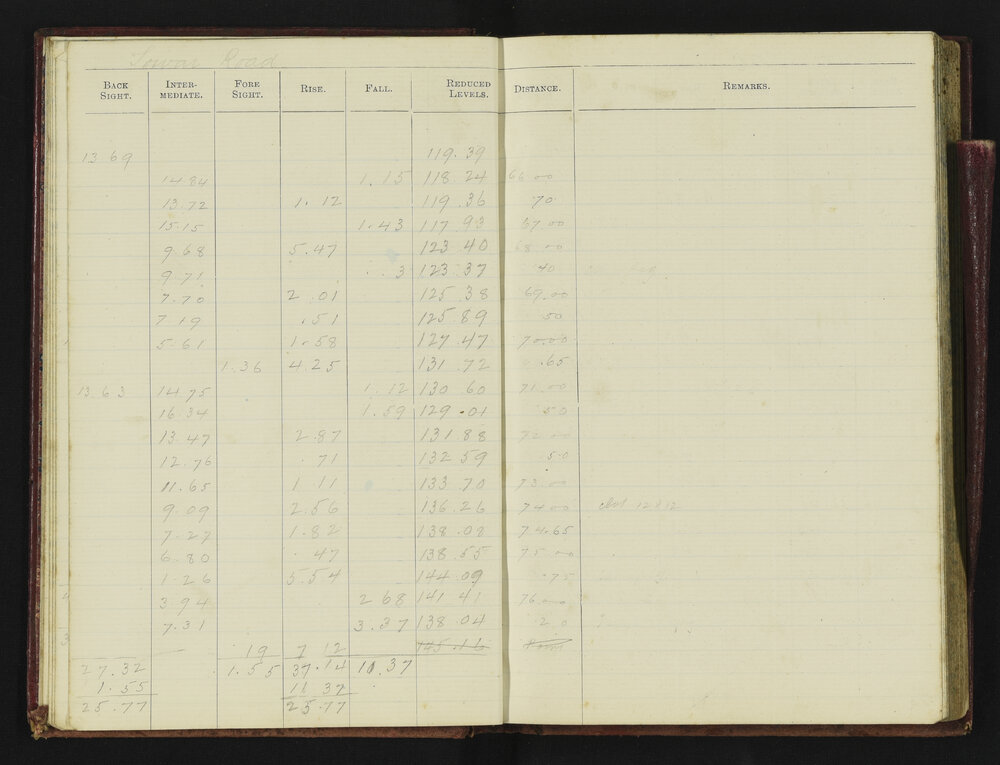 Road
BACK SIGHT. INTER-MEDIATE. FORE SIGHT. RISE. FALL. REDUCED LEVELS. DISTANCE. REMARKS.
13 69 119.39
14 84 1.15 118.24 66 00
13.72 1.12 119.36 70
15.15 1.43 117.93 67.00
9.68 5.47 123.40 68 00
9.71 . . 3 123.37 40
7.70 2 .01 125.38 69.00
7 19 .51 125.89 50
5.61 1.58 127.47 70.00
1.36 4.25 131.72 .65
13 63 14 75 1.12 130 60 71.00
16.34 1.59 129.01 50
13.47 2.87 131.88 72.00
12.76 .71 132.59 50
11.65 1 11 133.70 73.00
9.09 2.56 136.26 74.00 12x12
7.27 1.82 138.08 74.65
6.80 .47 138.55 75.00
1.26 5.54 144.09 .75
3.94 2 68 141 41 76.00
7.31 3.37 138.04 20
19 7 12 145.16
27.32 1.55 37.14 11.37
1.55 11 37
25.77 25.77